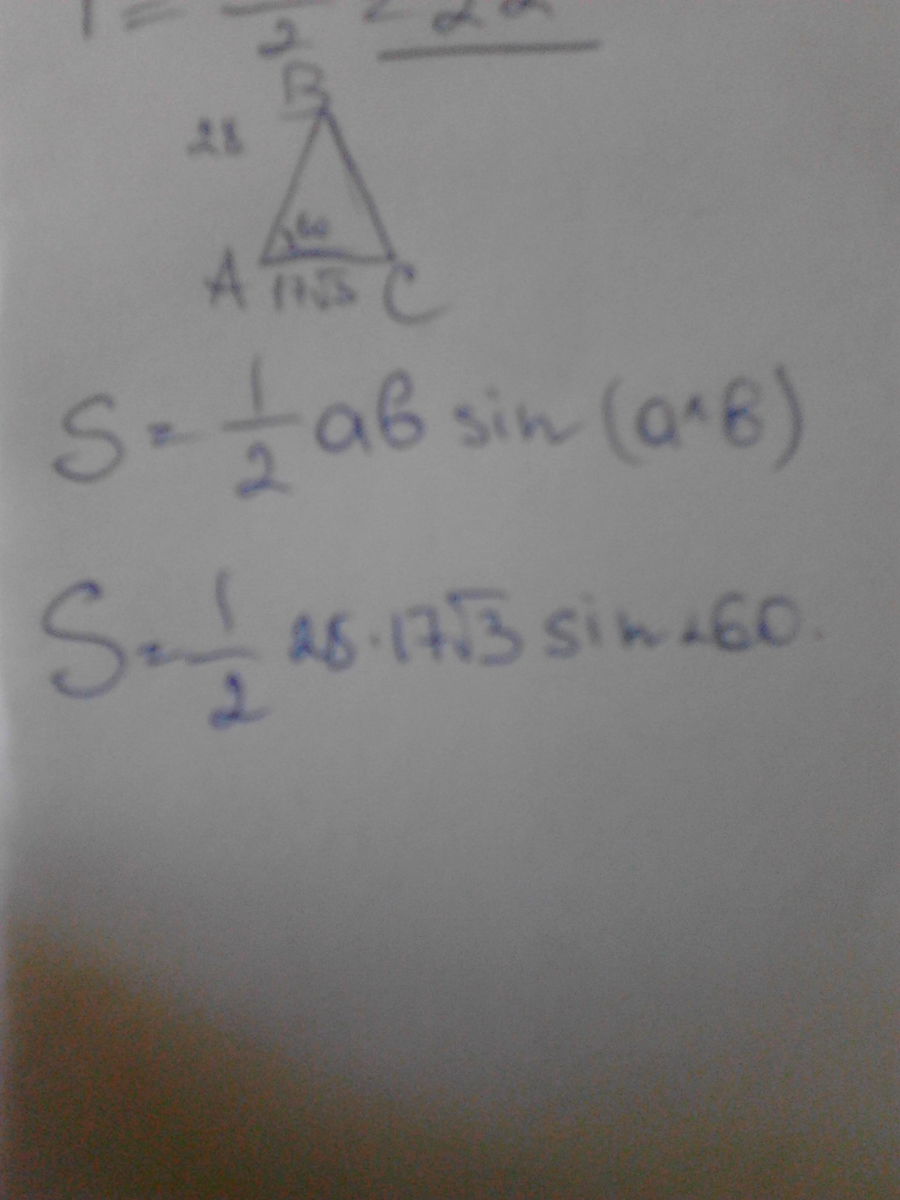 2
B
28
60
A 17√3 C
S = 1/2 aв sin (a^в)
S = 1/2 28 · 17√3 sin ∠60.